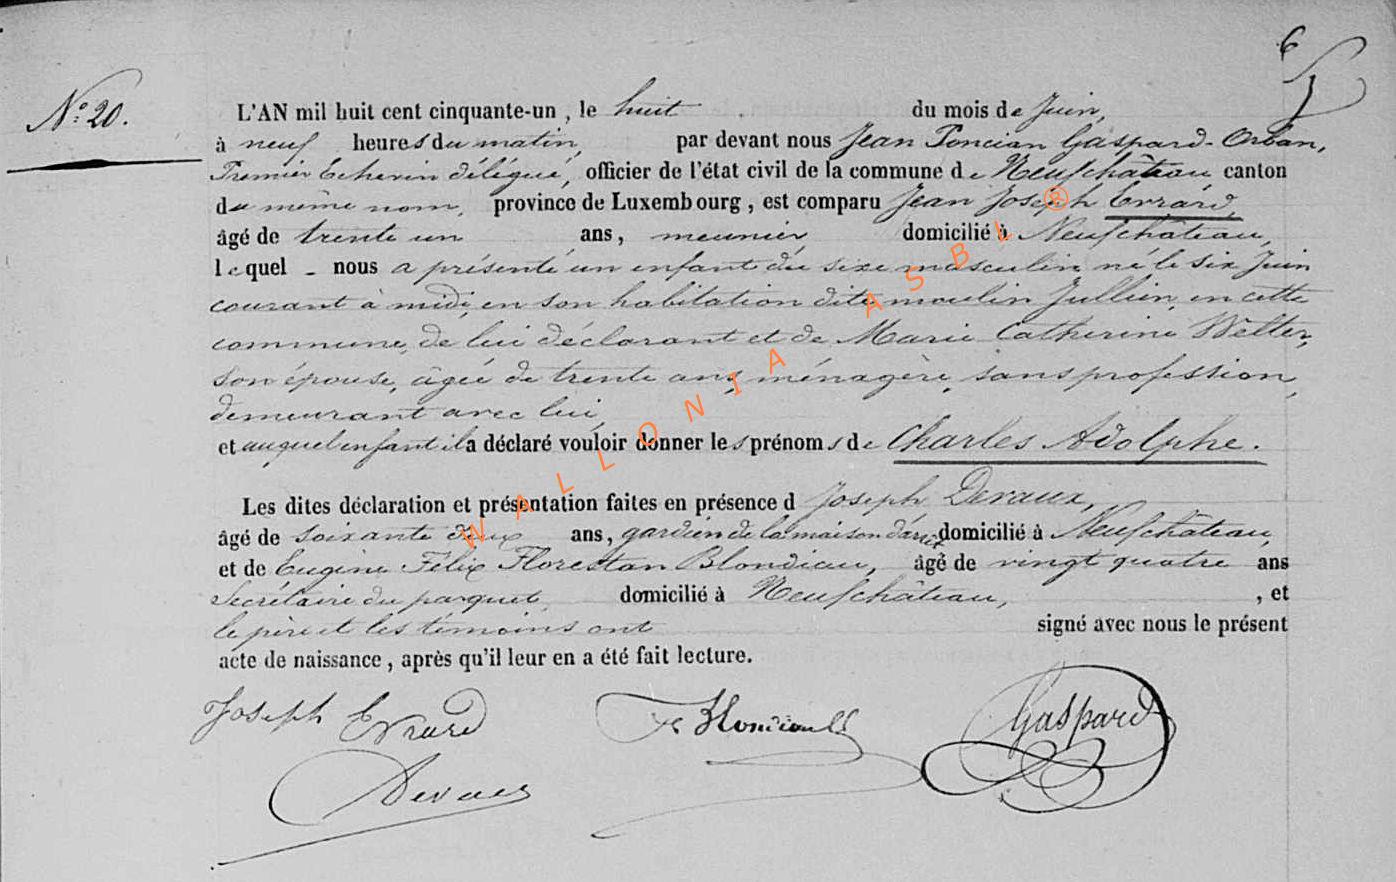 6
N.º 20.
L'AN mil huit cent cinquante-un, le huit du mois de Juin,
à neuf heures du matin, par devant nous Jean Poncian Gaspard-Orban,
Premier Echevin délégué, officier de l'état civil de la commune de Neufchâteau canton
du même nom, province de Luxembourg, est comparu Jean Joseph Evrard,
âgé de trente un ans, meunier, domicilié à Neufchâteau,
lequel - nous a présenté un enfant du sexe masculin, né le six Juin
courant à midi, en son habitation dite moulin Jullien, en cette
commune, de lui déclarant et de Marie Catherine Welter,
son épouse, âgée de trente ans, ménagère, sans profession,
demeurant avec lui,
et auquel enfant il a déclaré vouloir donner les prénoms de Charles Adolphe.
Les dites déclaration et présentation faites en présence d Joseph Devaux,
âgé de soixante deux ans, gardien de la maison d'arrêt domicilié à Neufchâteau,
et de Eugène Félix Florestan Blondiau, âgé de vingt quatre ans
Secrétaire du parquet, domicilié à Neufchâteau, , et
le père et les témoins ont signé avec nous le présent
acte de naissance, après qu'il leur en a été fait lecture.
Joseph Evrard Gaspard
Devaux
WALLONIA ASBL ®